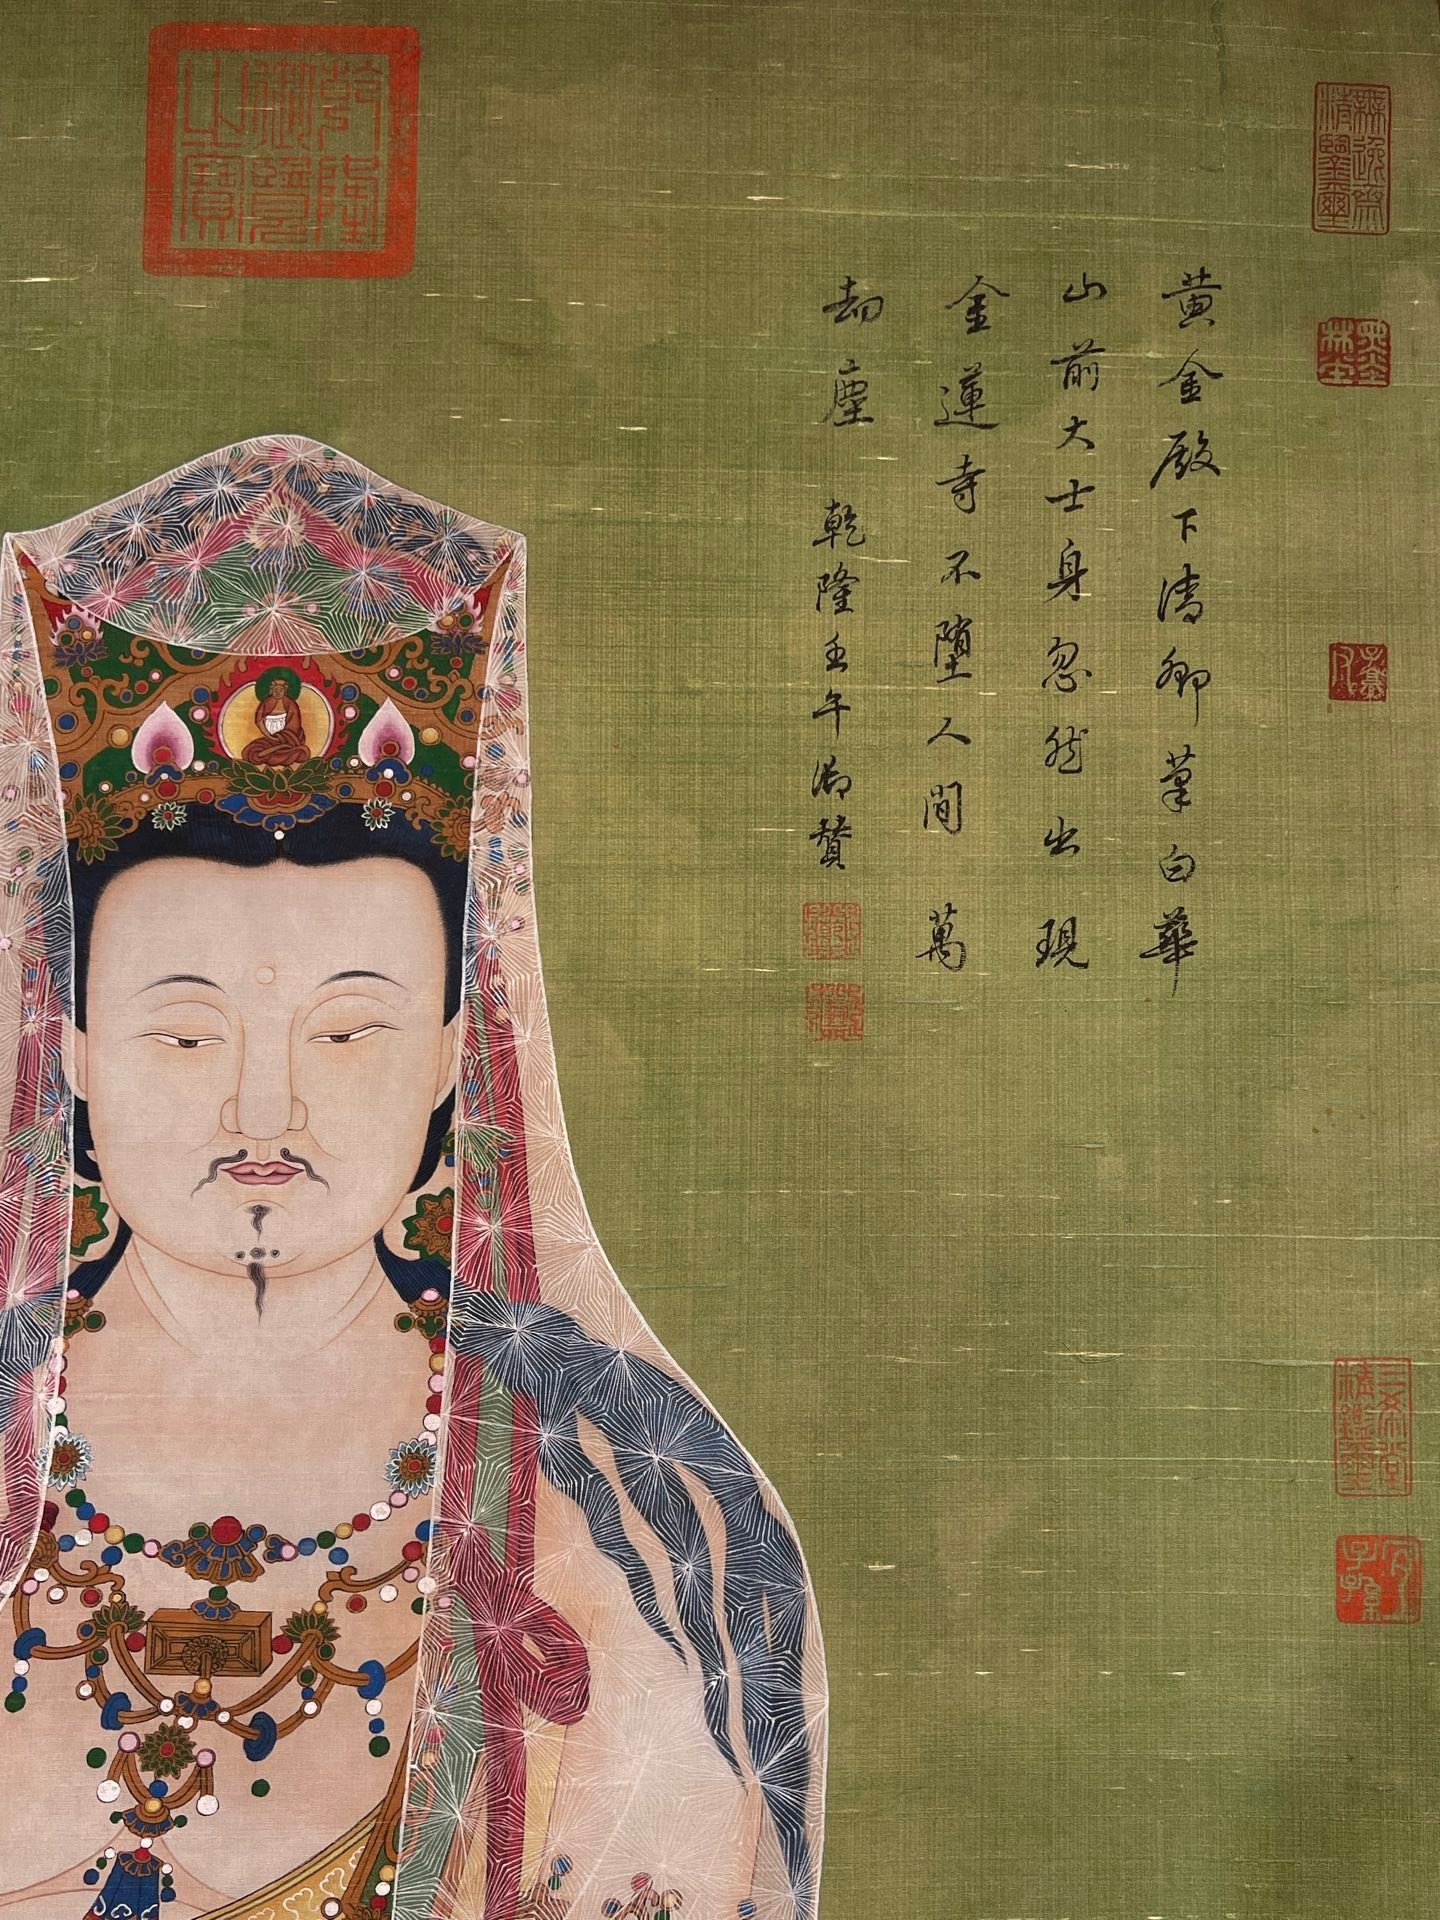 黄金殿下清卿筆白華
山前大士身忽然出現
金蓮寺不墮人間萬
劫塵 乾隆壬午御贊
乾隆御覽之寶
無逸齋精鑒璽
三希堂精鑑璽
宜子孫